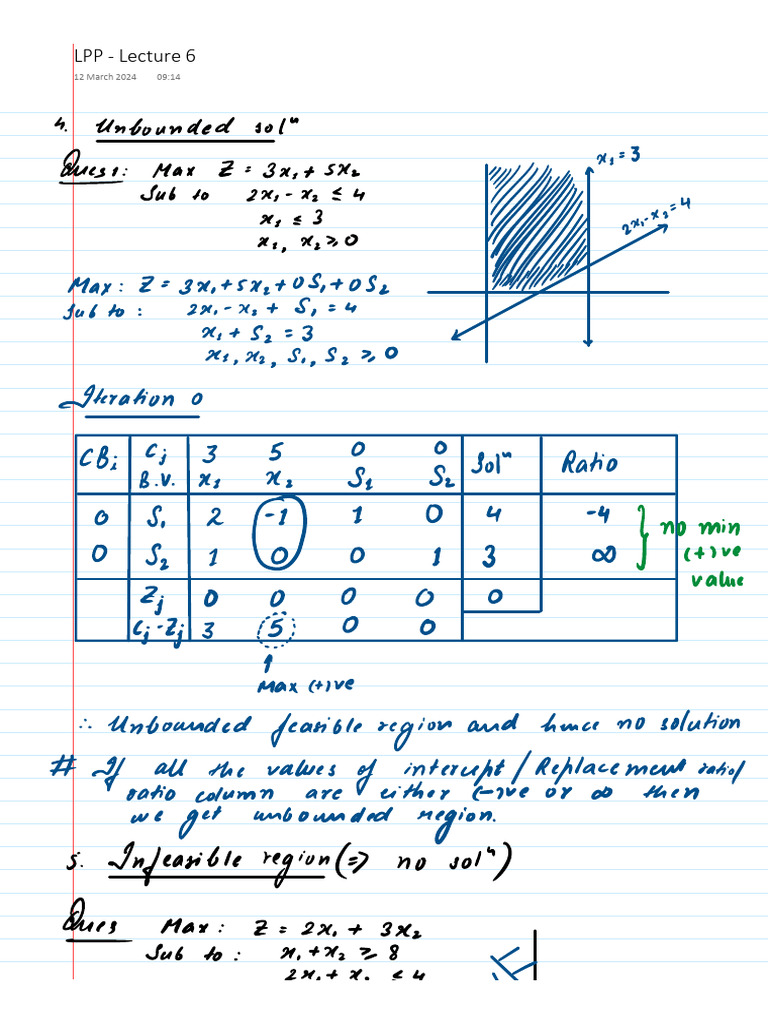 LPP - Lecture 6
12 March 2024 09:14
4. Unbounded solⁿ
Ques1: Max Z = 3x₁ + 5x₂
Sub to 2x₁ - x₂ ≤ 4
x₁ ≤ 3
x₁, x₂ ≥ 0
x₁ = 3
2x₁ - x₂ = 4
Max: Z = 3x₁ + 5x₂ + 0S₁ + 0S₂
Sub to: 2x₁ - x₂ + S₁ = 4
x₁ + S₂ = 3
x₁, x₂, S₁, S₂ ≥ 0
Iteration 0
CBi Cj 3 5 0 0 Solⁿ Ratio
B.V. x₁ x₂ S₁ S₂
0 S₁ 2 -1 1 0 4 -4
0 S₂ 1 0 0 1 3 ∞
no min
(+)ve
value
Zj 0 0 0 0 0
Cj - Zj 3 5 0 0
Max (+)ve
∴ Unbounded feasible region and hence no solution
# If all the values of intercept / Replacement ratio/
ratio column are either (-)ve or ∞ then
we get unbounded region.
5. Infeasible region (=> no solⁿ)
Ques Max: Z = 2x₁ + 3x₂
Sub to: x₁ + x₂ ≥ 8
2x₁ + x₂ ≤ 4